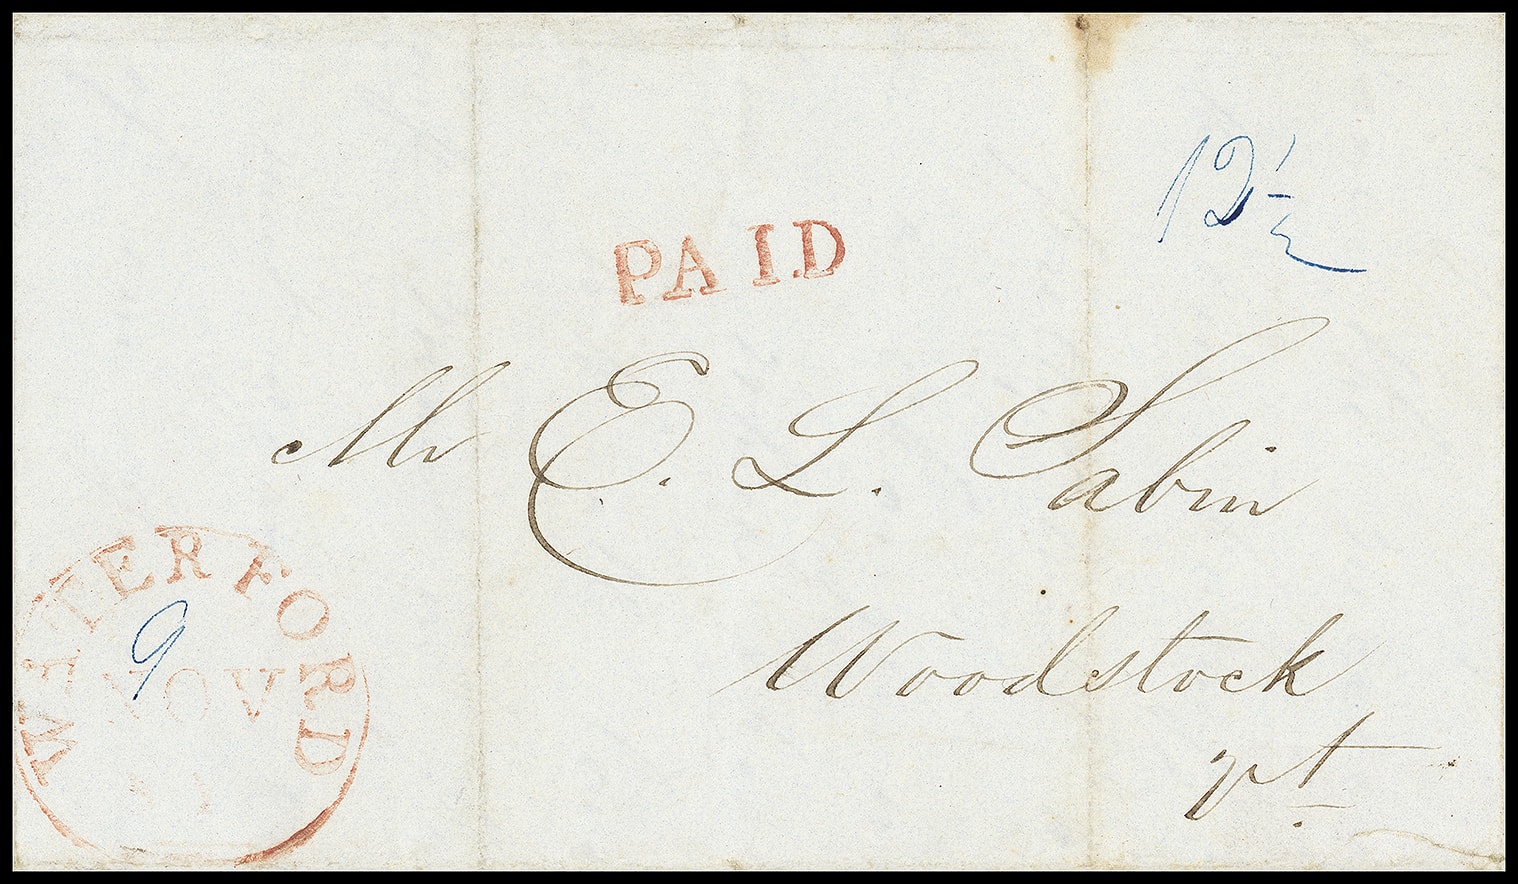 12½
PAID
Mr E. L. Sabin
WATERFORD
9
NOV
Woodstock
Vt.